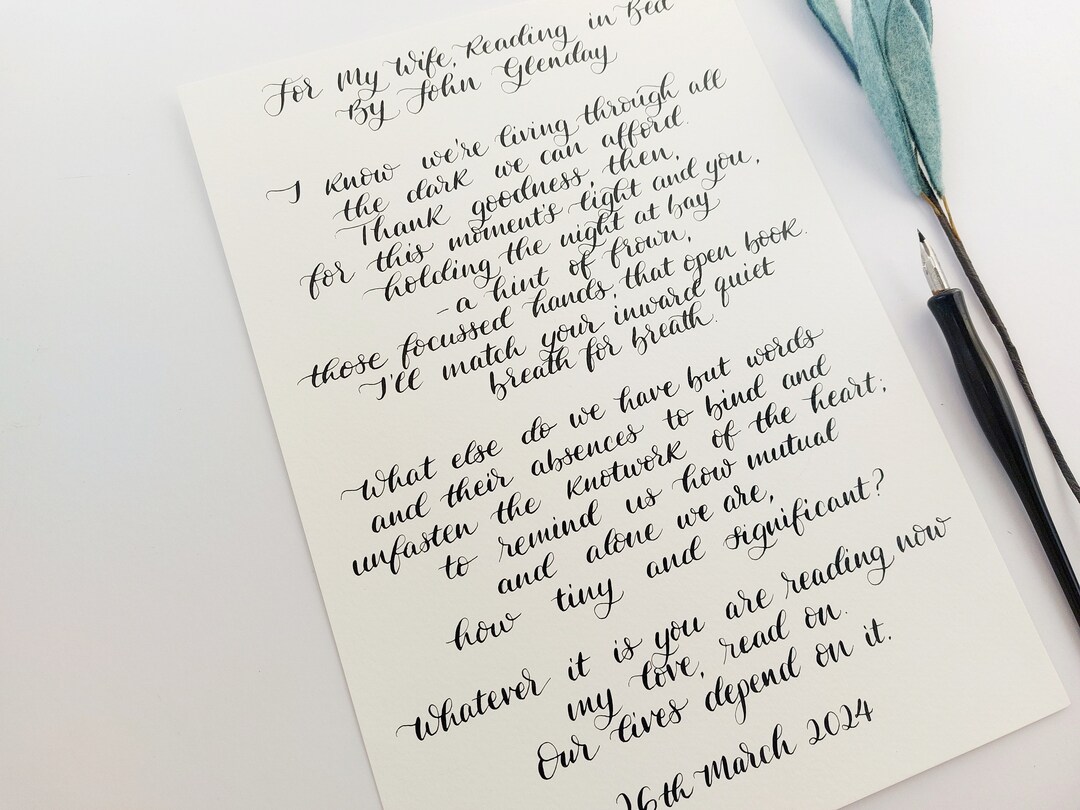 For My Wife, Reading in Bed
By John Glenday
I know we're living through all
the dark we can afford.
Thank goodness, then,
for this moment's light and you,
holding the night at bay
- a hint of frown,
those focussed hands, that open book.
I'll match your inward quiet
breath for breath.
What else do we have but words
and their absences to bind and
unfasten the knotwork of the heart;
to remind us how mutual
and alone we are,
how tiny and significant?
Whatever it is you are reading now
my love, read on.
Our lives depend on it.
26th March 2024